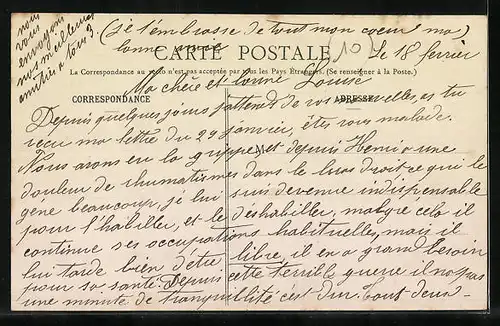 (je t'embrasse de tout mon coeur ma
bonne amie
nous
vous
envoyons
nos meilleures
amitiés à tous 3.
CARTE POSTALE
10
Le 18 fevrier
La Correspondance au recto n'est pas acceptée par tous les Pays Étrangers. (Se renseigner à la Poste.)
Ma chère et bonne Louise
CORRESPONDANCE
ADRESSE
Depuis quelques jours j'attends de vos nouvelles, as tu
recu ma lettre du 29 janvier, êtes vous malade.
M
Nous avons eu la grippe et depuis Henri a une
douleur de rhumatismes dans le bras droit ce qui le
gêne beaucoup, je lui suis devenue indispensable
pour l'habiller, et le déshabiller, malgré cela il
continue ses occupations habituelles, mais il
lui tarde bien d'être libre, il en a grand besoin
pour sa santé. Depuis cette terrible guerre il n'a pas
une minute de tranquillité c'est dur. Tout deux